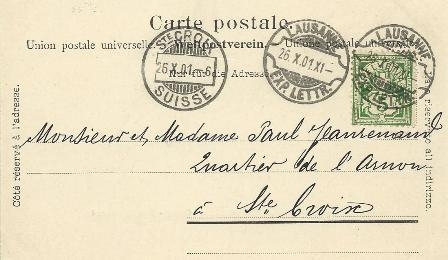 Carte postale.
Union postale universelle. Weltpostverein. Unione postale universale.
Nur für die Adresse.
STE CROIX
26.X.01.-6
SUISSE
LAUSANNE
26.X.01.XI-
EXP. LETTR.
LAUSANNE
Côté réservé à l'adresse.
Monsieur et Madame Paul Jeanrenaud
Quartier de l'Arnon
à Ste. Croix